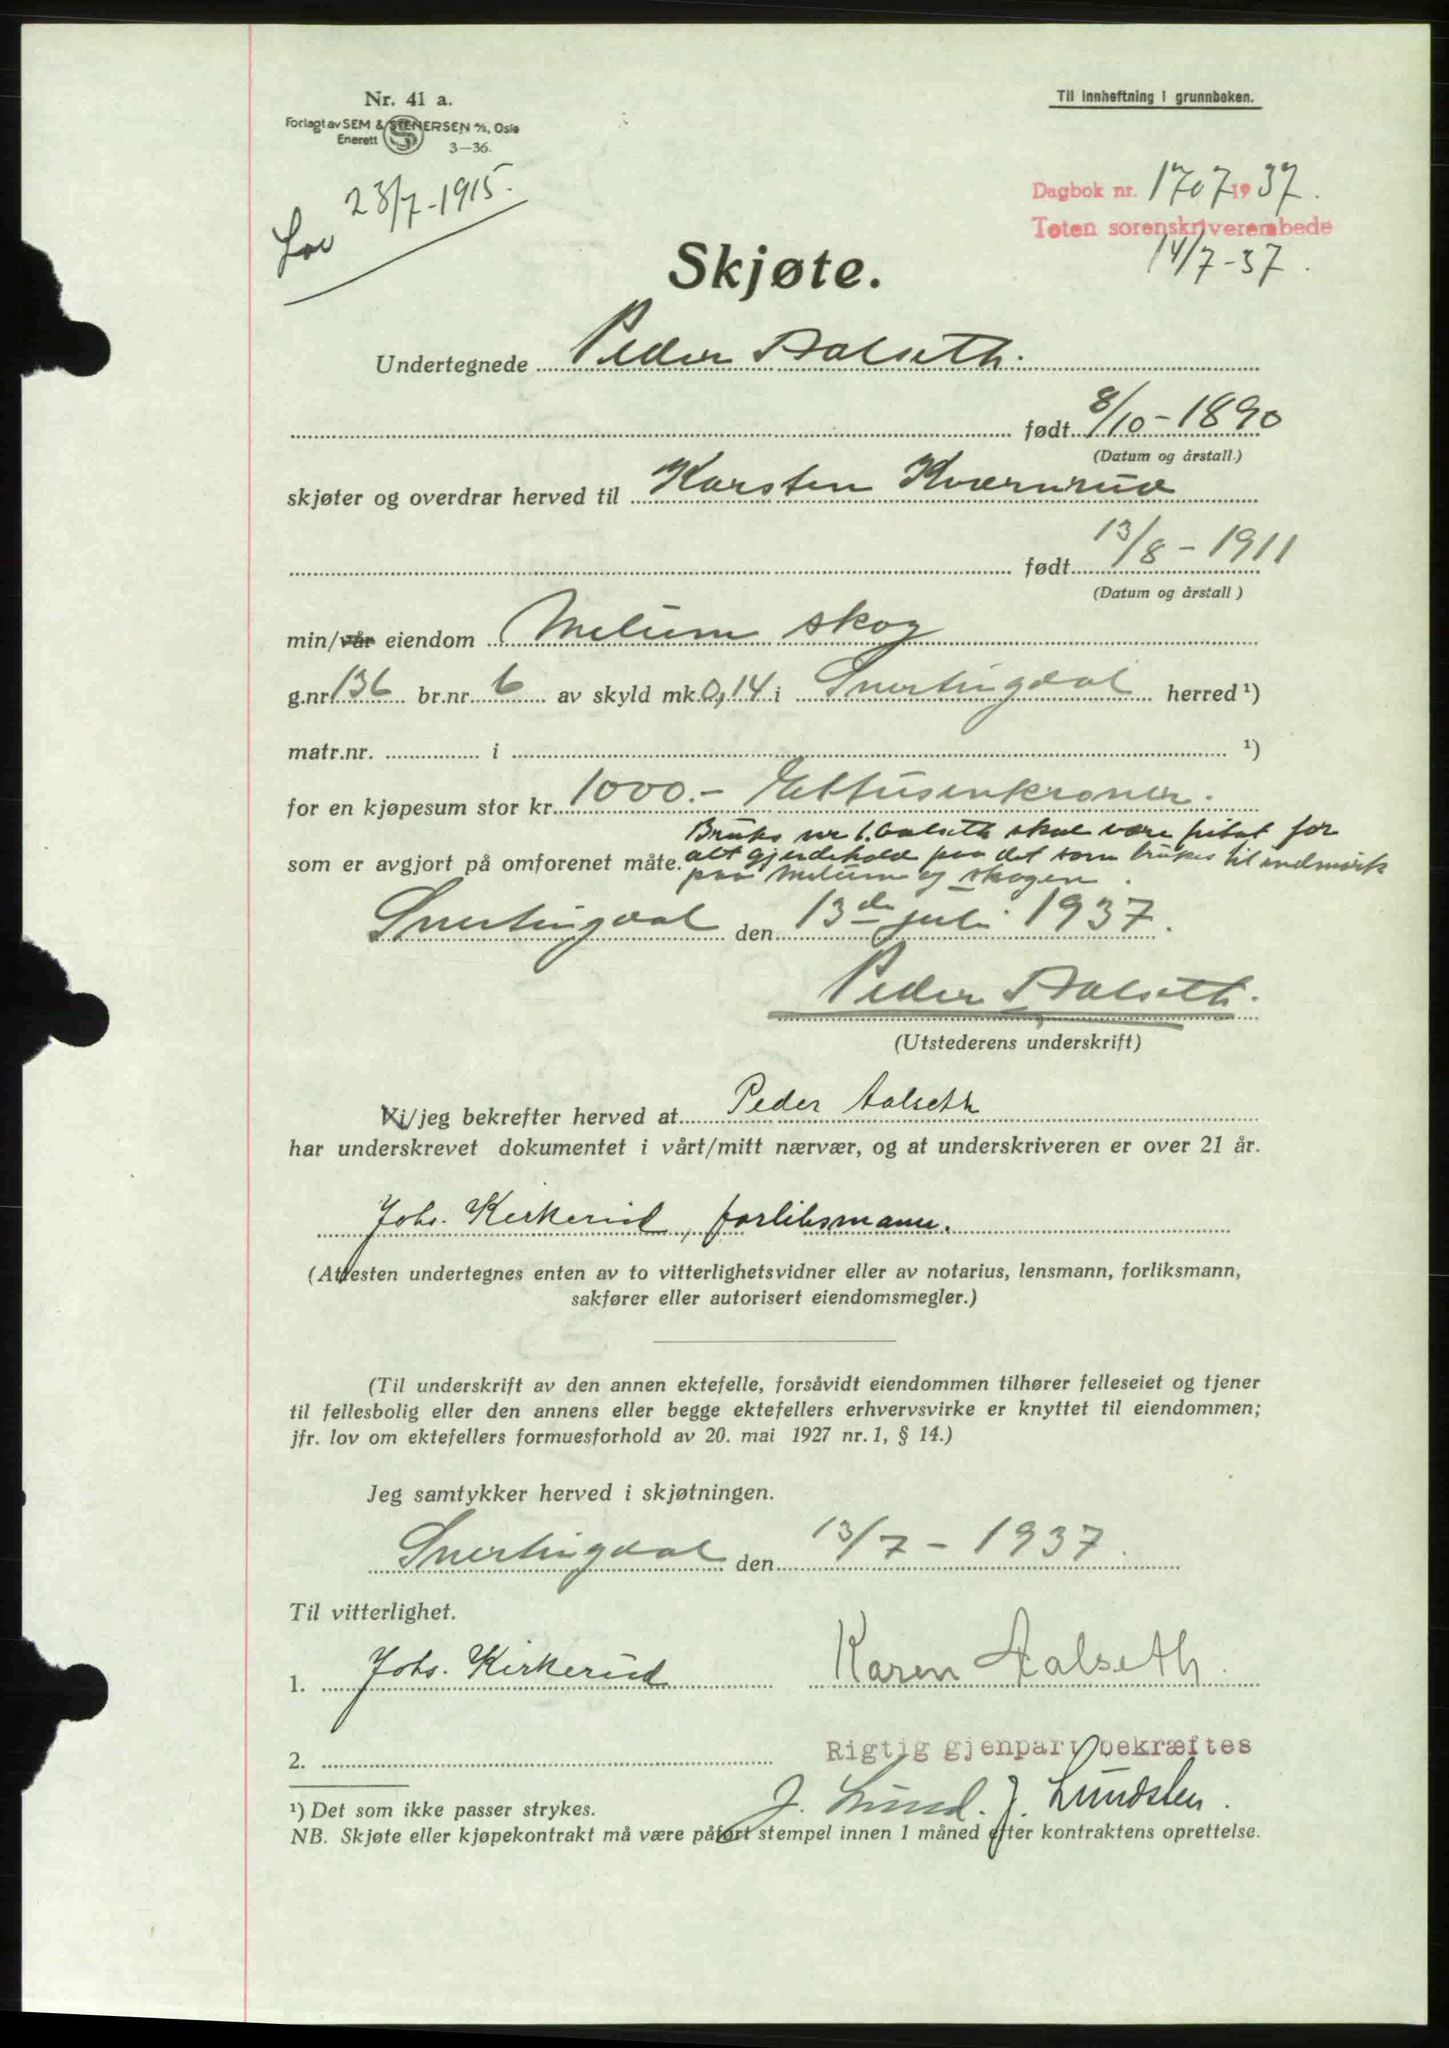 Nr. 41 a.
Til innheftning i grunnboken.
Forlagt av SEM & STENERSEN A/S, Oslo
Enerett 3—36.
Lov 23/7-1915.
Dagbok nr. 1707 1937.
Toten sorenskriverembede
14/7-37.
Skjøte.
Undertegnede Peder Aalseth.
født 8/10-1890
(Datum og årstall.)
skjøter og overdrar herved til Karsten Kværnrud
født 13/8-1911
(Datum og årstall)
min/vår eiendom Melum skog
g.nr 136 br.nr. 6 av skyld mk. 0,14 i Snertingdal herred ¹)
matr.nr. i ¹)
for en kjøpesum stor kr. 1000.- Ettusenkroner.
Bruks nr 1. Aalseth skal være fritat for
som er avgjort på omforenet måte. alt gjerdehold paa det som brukes til indmark
paa Melum og skogen.
Snertingdal den 13de juli 1937.
Peder Aalseth.
(Utstederens underskrift)
Vi/jeg bekrefter herved at Peder Aalseth
har underskrevet dokumentet i vårt/mitt nærvær, og at underskriveren er over 21 år.
Johs. Kirkerud, forliksmann.
(Attesten undertegnes enten av to vitterlighetsvidner eller av notarius, lensmann, forliksmann,
sakfører eller autorisert eiendomsmegler.)
(Til underskrift av den annen ektefelle, forsåvidt eiendommen tilhører felleseiet og tjener
til fellesbolig eller den annens eller begge ektefellers erhvervsvirke er knyttet til eiendommen;
jfr. lov om ektefellers formuesforhold av 20. mai 1927 nr. 1, § 14.)
Jeg samtykker herved i skjøtningen.
Snertingdal den 13/7-1937.
Til vitterlighet.
1. Johs. Kirkerud Karen Aalseth.
2. Rigtig gjenpart bekræftes
¹) Det som ikke passer strykes. J. Lund. J. Lundsten.
NB. Skjøte eller kjøpekontrakt må være påført stempel innen 1 måned efter kontraktens oprettelse.